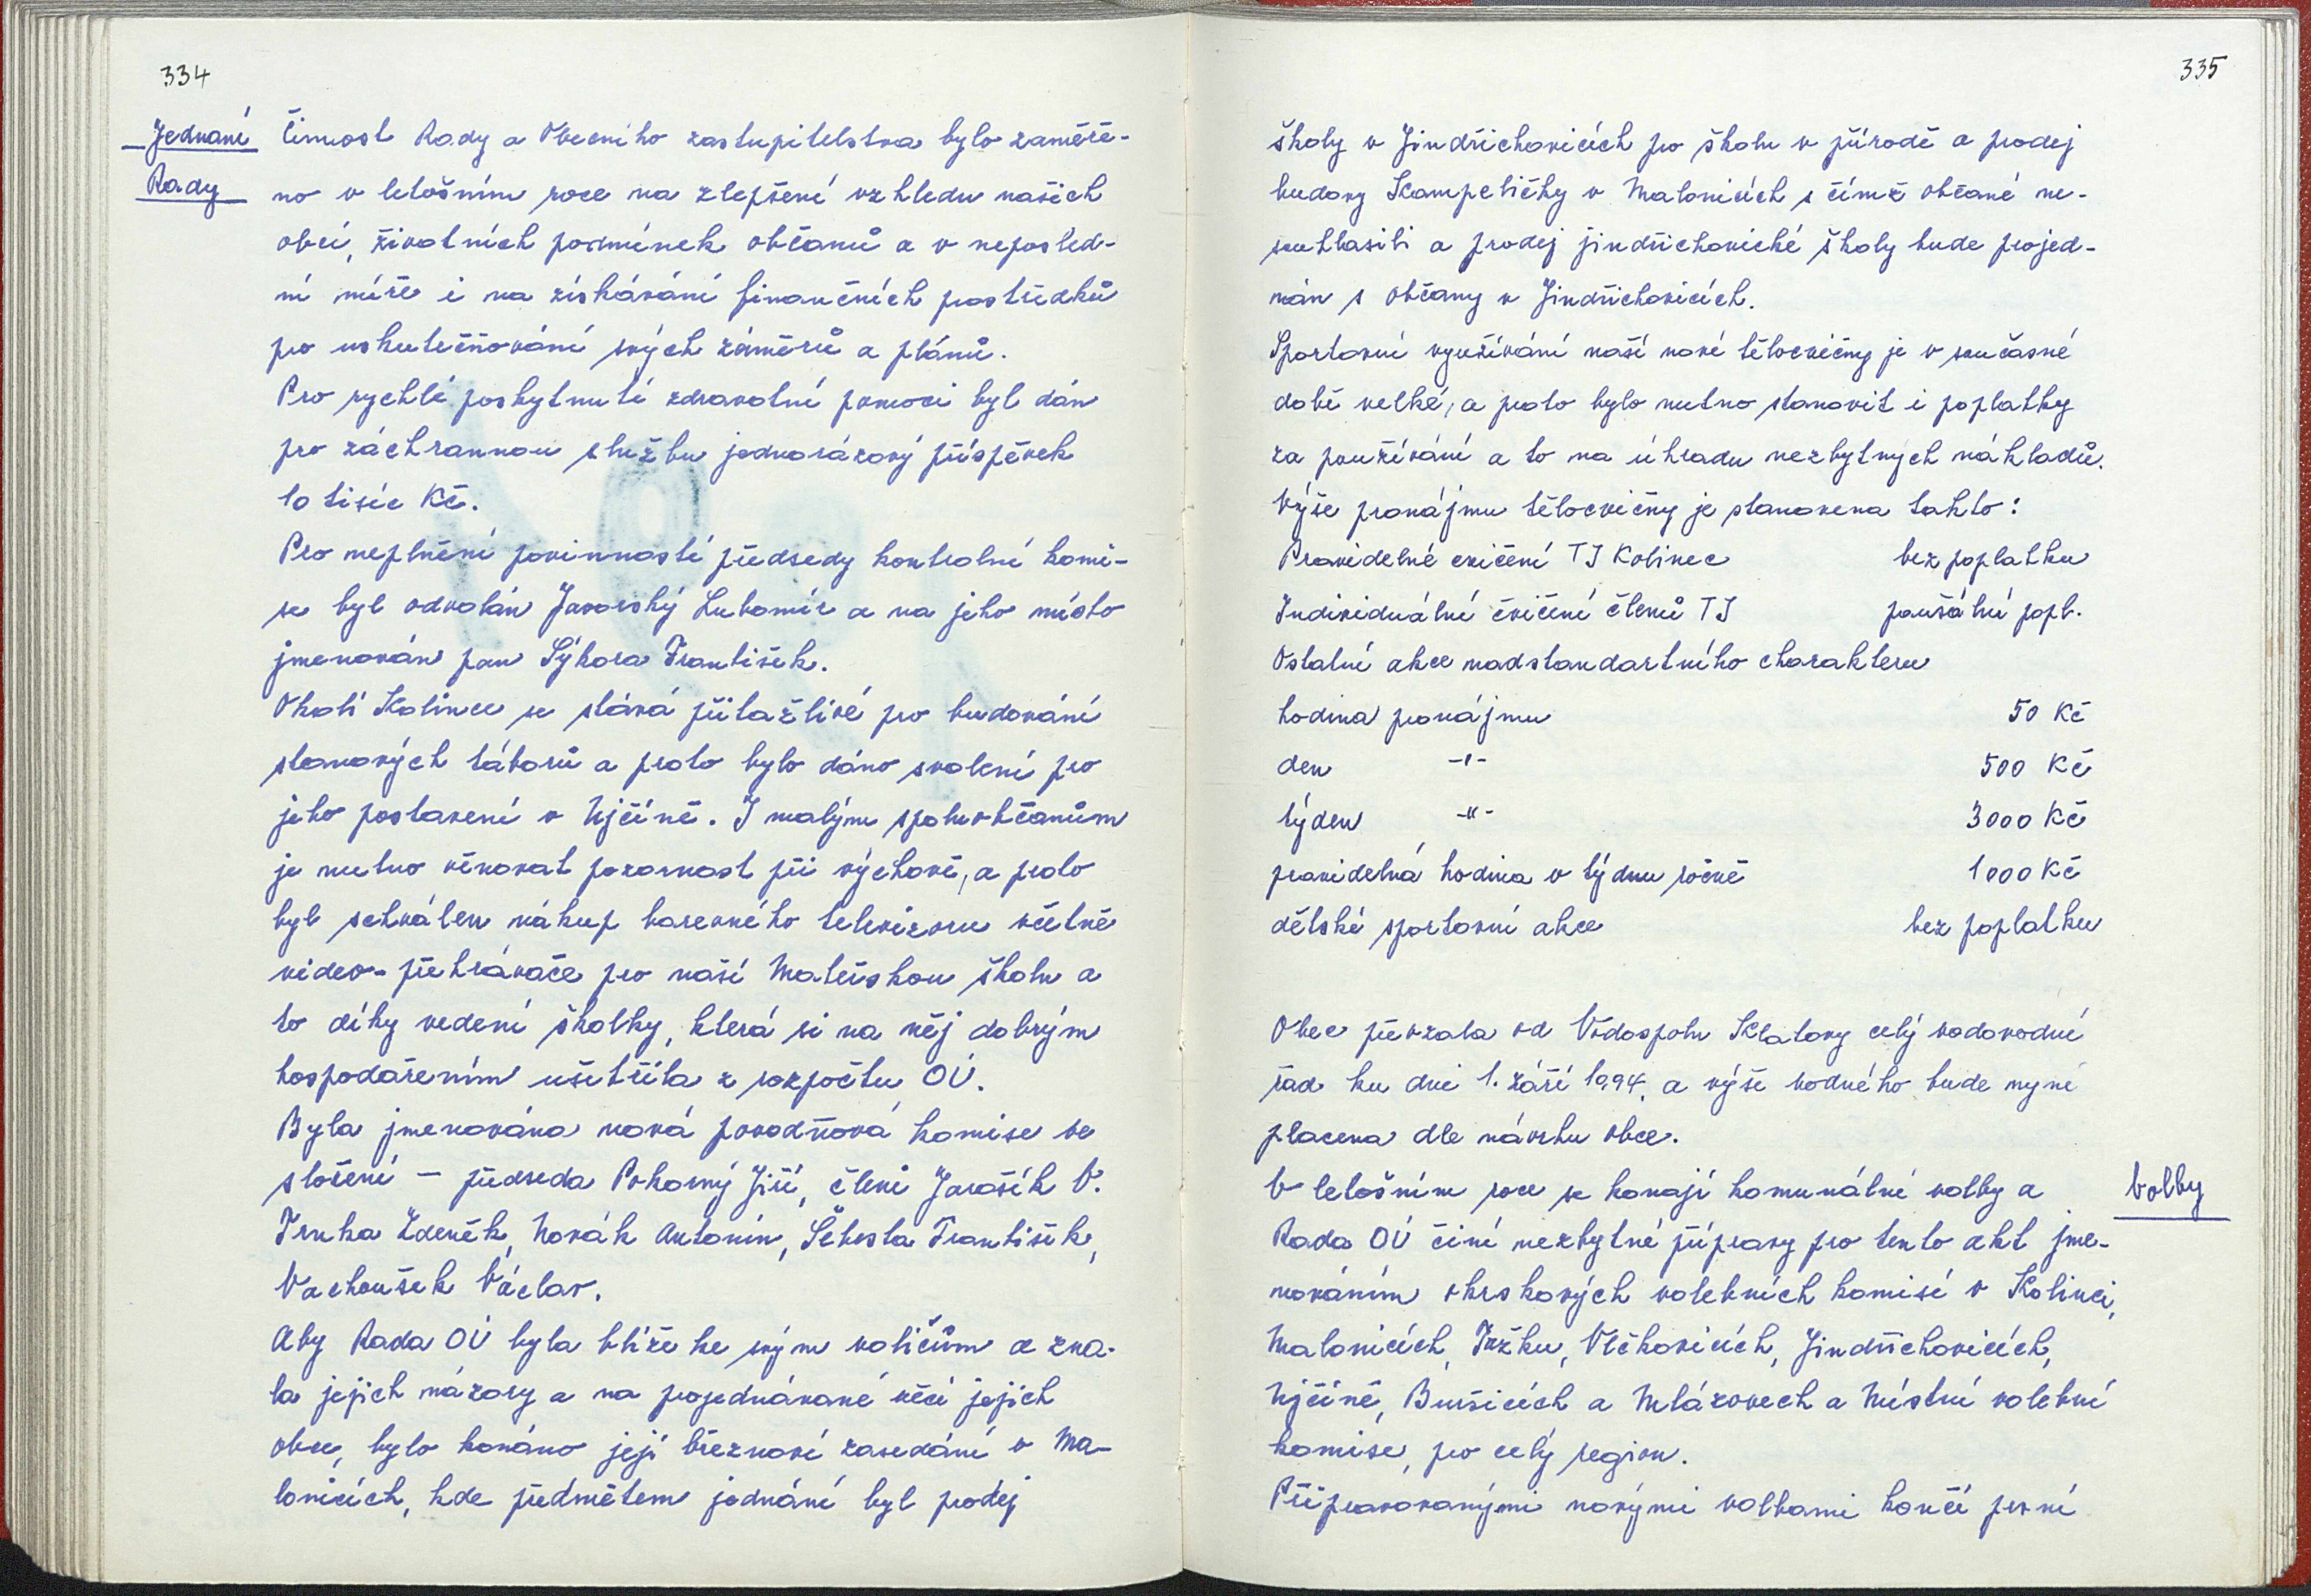 334
Jednaní
Rady
Činnost Rady a Obecního zastupitelstva bylo zaměře-
no v letošním roce na zlepšení vzhledu našich
obcí, životních podmínek občanů a v neposled-
ní míře i na získávání finančních prostředků
pro uskutečňování svých záměrů a plánů.
Pro rychlé poskytnutí zdravotní pomoci byl dán
pro záchrannou službu jednorázový příspěvek
10 tisíc Kč.
Pro neplnění povinností předsedy kontrolní komi-
se byl odvolán Javorský Lubomír a na jeho místo
jmenován pan Sýkora František.
Okolí Kolince se stává přitažlivé pro budování
stanových táborů a proto bylo dáno svolení pro
jeho postavení v Ujčíně. I malým spoluobčanům
je nutno věnovat pozornost při výchově, a proto
byl schválen nákup barevného televizoru včetně
video-přehrávače pro naší Mateřskou školu a
to díky vedení školky, která si na něj dobrým
hospodařením ušetřila z rozpočtu OÚ.
Byla jmenována nová povodňová komise ve
složení – předseda Pokorný Jiří, členi Jarošík V.
Trnka Zdeněk, Novák Antonín, Šebesta František,
Vachoušek Václav.
Aby Rada OÚ byla blíže ke svým voličům a zna-
la jejich názory a na projednávané věci jejich
obce, bylo konáno její březnové zasedání v Ma-
lonicích, kde předmětem jednání byl prodej
335
školy v Jindřichovicích pro školu v přírodě a prodej
budovy Kampeličky v Malonicích s čímž občané ne-
souhlasili a prodej jindřichovické školy bude projed-
nán s občany v Jindřichovicích.
Sportovní využívání naší nové tělocvičny je v současné
době velké, a proto bylo nutno stanovit i poplatky
za používání a to na úhradu nezbytných nákladů.
Výše pronájmu tělocvičny je stanovena takto:
Pravidelné cvičení TJ Kolinec bez poplatku
Individuální cvičení členů TJ paušální popl.
Ostatní akce nadstandartního charakteru
hodina pronájmu 50 Kč
den -"- 500 Kč
týden -"- 3000 Kč
pravidelná hodina v týdnu ročně 1000 Kč
dětské sportovní akce bez poplatku
Obec převzala od Vodospolu Klatovy celý vodovodní
řad ku dni 1. září 1994, a výše vodného bude nyní
placena dle návrhu obce.
V letošním roce se konají komunální volby a
Volby
Rada OÚ činí nezbytné přípravy pro tento akt jme-
nováním okrskových volebních komisí v Kolinci,
Malonicích, Tržku, Vlčkovicích, Jindřichovicích,
Ujčíně, Buršicích a Mlázovech a Místní volební
komise, pro celý region.
Připravovanými novými volbami končí první